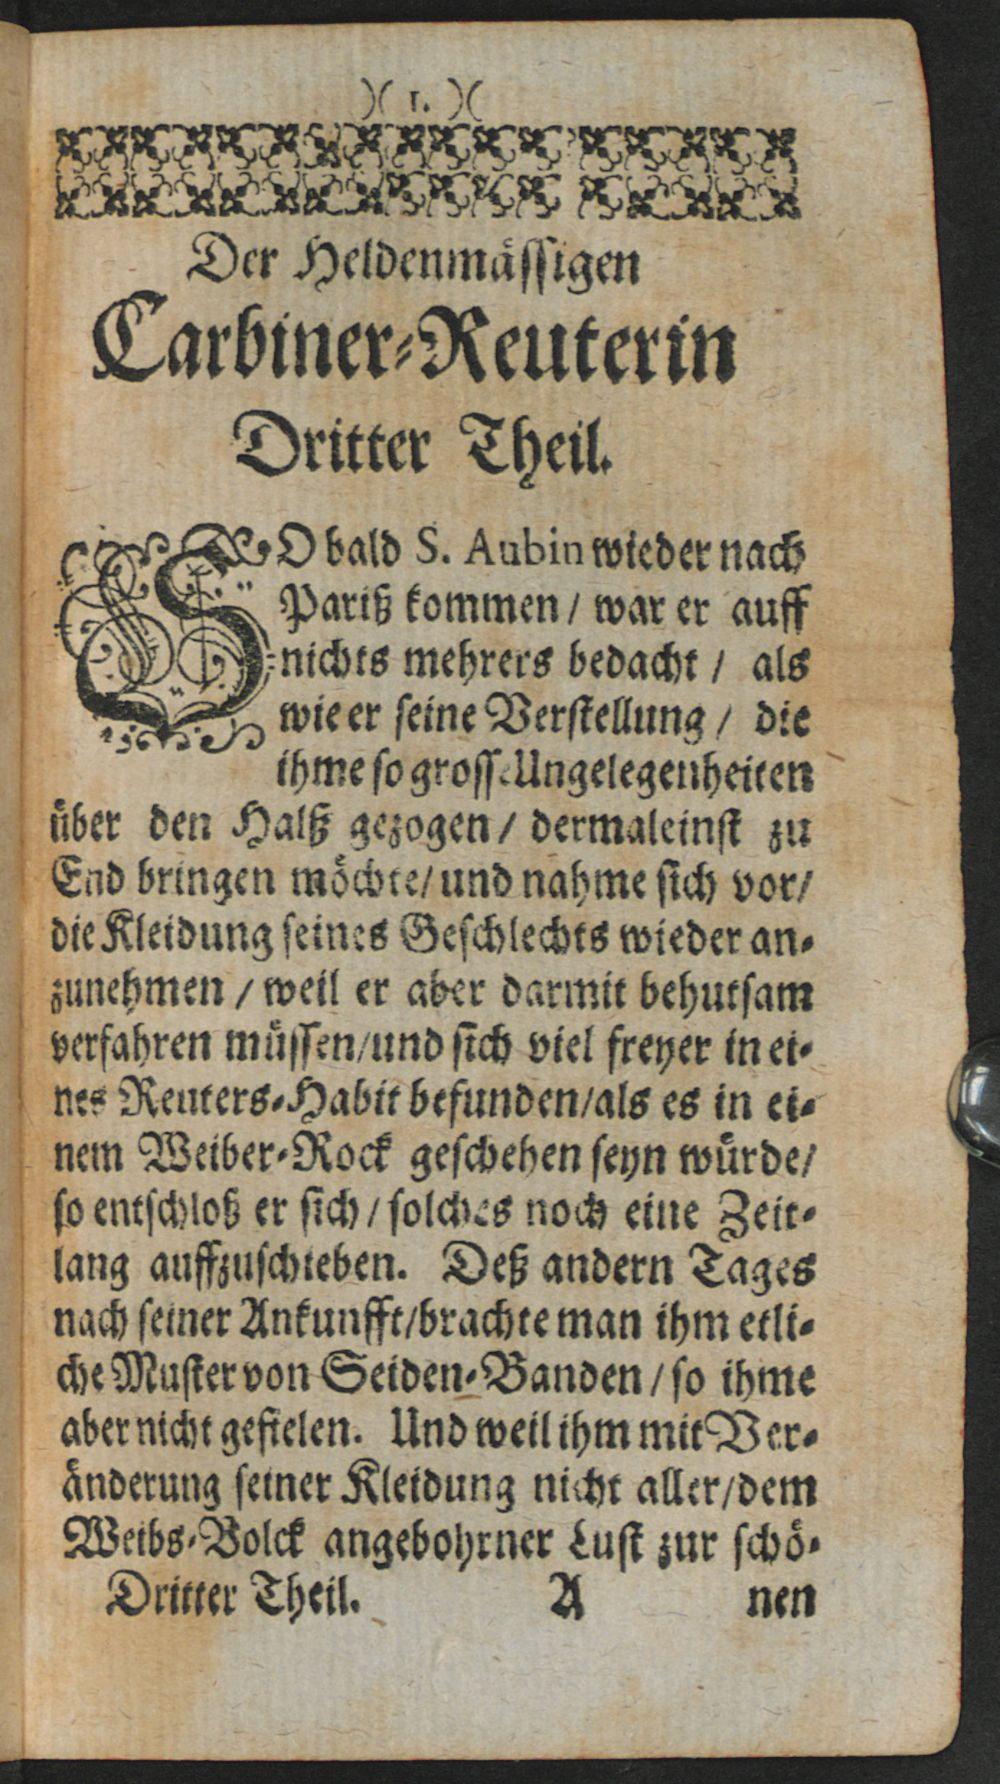 )( 1. )(
Der Heldenmässigen
Carbiner-Reuterin
Dritter Theil.
SO bald S. Aubin wieder nach
Pariß kommen / war er auff
nichts mehrers bedacht / als
wie er seine Verstellung / die
ihme so grosse Ungelegenheiten
über den Halß gezogen / dermaleinst zu
End bringen möchte / und nahme sich vor /
die Kleidung seines Geschlechts wieder an-
zunehmen / weil er aber darmit behutsam
verfahren müssen / und sich viel freyer in ei-
nes Reuters-Habit befunden / als es in ei-
nem Weiber-Rock geschehen seyn würde /
so entschloß er sich / solches noch eine Zeit-
lang auffzuschieben. Deß andern Tages
nach seiner Ankunfft / brachte man ihm etli-
che Muster von Seiden-Banden / so ihme
aber nicht gefielen. Und weil ihm mit Ver-
änderung seiner Kleidung nicht aller / dem
Weibs-Volck angebohrner Lust zur schö-
Dritter Theil. A nen